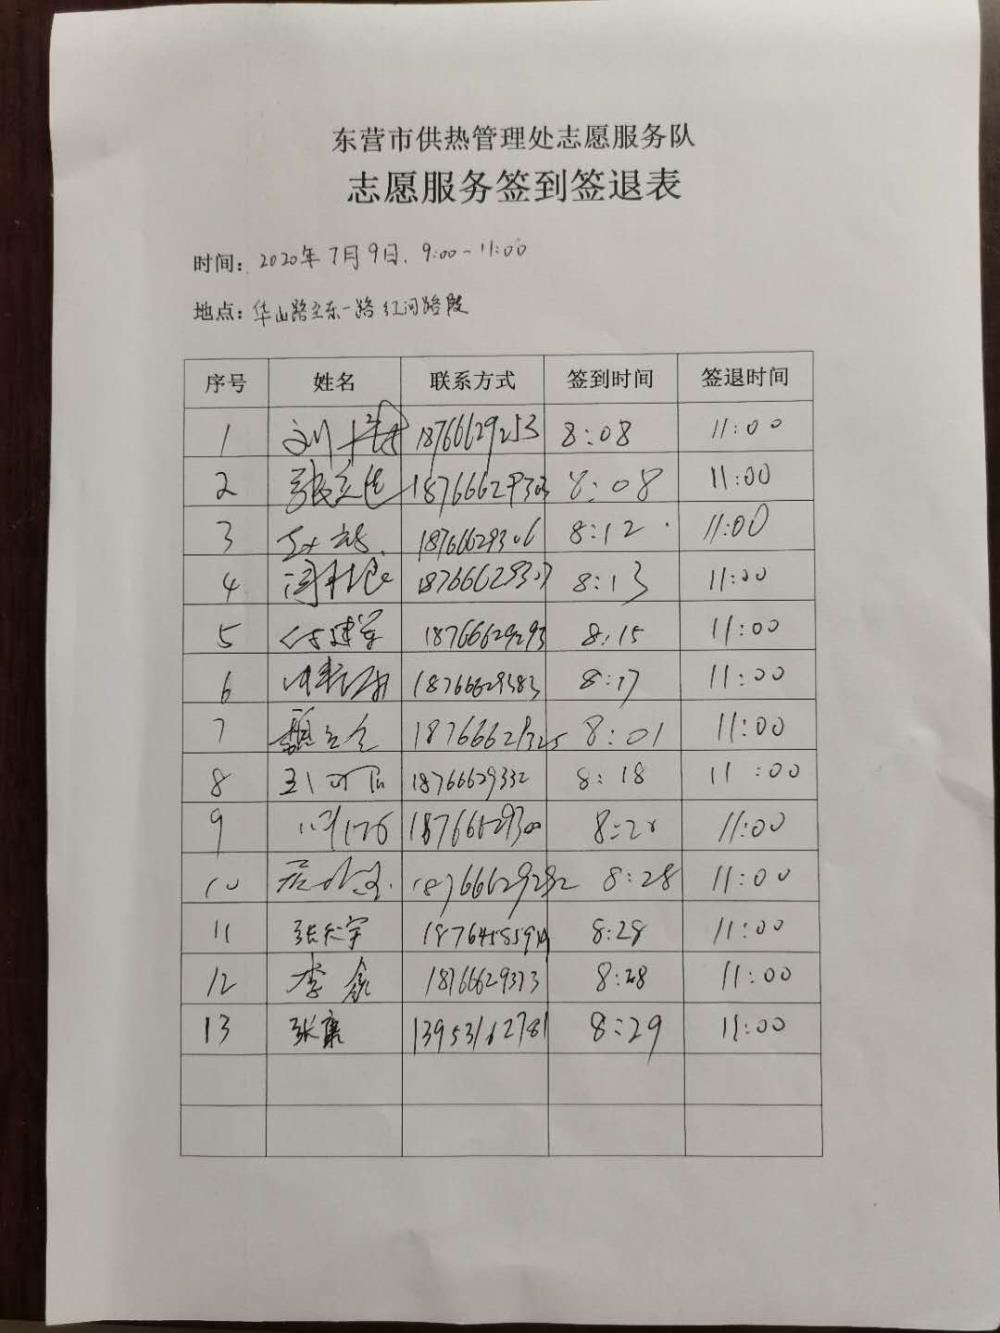 东营市供热管理处志愿服务队
志愿服务签到签退表
时间: 2020年7月9日. 9:00-11:00
地点: 华山路至东一路红河路段
序号 姓名 联系方式 签到时间 签退时间
1 刘 18766629253 8:08 11:00
2 张 8:08 11:00
3 18766629306 8:12 11:00
4 18766629307 8:13 11:00
5 建军 18766629293 8:15 11:00
6 18766629383 8:17 11:00
7 魏 18766629325 8:01 11:00
8 18766629332 8:18 11:00
9 18766629300 11:00
10 18766629292 8:28 11:00
11 张宇 8:28 11:00
12 李鑫 18766629373 8:28 11:00
13 张康 13953162781 8:29 11:00